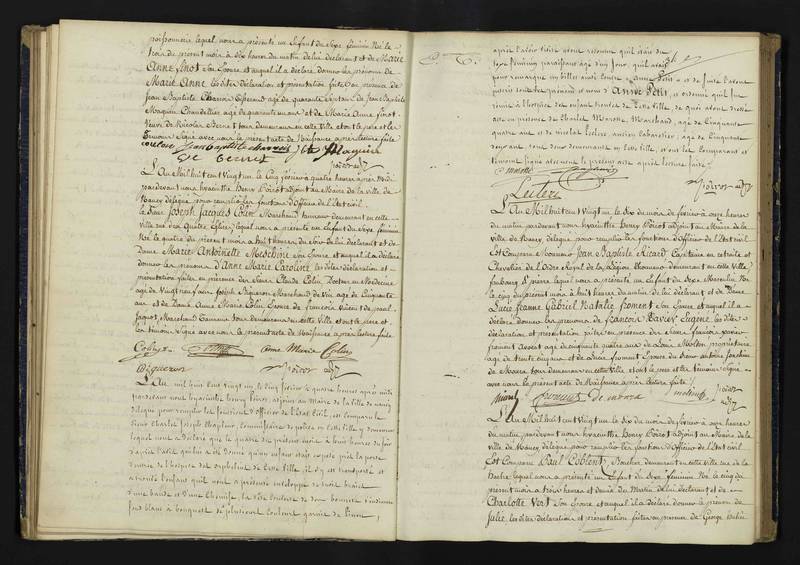 poissonnerie lequel nous a présenté un Enfant du Sexe féminin Né le
trois du présent mois à dix heures du matin de lui déclarant et de Marie
Anne finot Son Epouse et auquel il a déclaré donner les prénoms de
Marie Anne les dites déclaration et présentation faites en présence de
Jean Baptiste Charron age de quarante Sept ans de Jean Baptiste
Maguin Chandellier age de quarante un ans et de Marie Anne finot
Veuve de Nicolas Bernet tous demeurant en cette Ville et ont le père et les
témoins Signé avec nous le présent acte de Naissance après lecture faite
Jean Baptiste charron J Bte Maguin
Ve Bernet
L'An Mil huit cent Vingt un le Cinq février à quatre heures après Midi
par devant nous hyacinthe Henry Poirot adjoint au Maire de la ville de
Nancy délégué pour remplir les fonctions d'Officier de l'Etat civil.
le Sieur Joseph Jacques Colin Marchand tanneur demeurant en cette
Ville rue des Quatre Eglises, lequel nous a présenté un Enfant du Sexe féminin
Né le quatre du présent mois à huit heures du Soir de lui déclarant et de
Dame Marie Antoinette Son Epouse et auquel il a déclaré
donner les prénoms d'Anne Marie Caroline les dites déclaration et
présentation faites en présence des Sieurs Claude Colin Docteur en Médecine
age de Vingt neuf ans Joseph Marchand de Vin age de Cinquante
ans et de Dame Anne Marie Colin Epouse de françois Vincent de paul
Marchand tanneur tous demeurant en cette Ville et ont le père et
les témoins Signé avec nous le présent acte de Naissance après lecture faite
Colin anne Marie Colin
L'An mil huit cent vingt un, le cinq février à quatre heures après midi
par devant nous hyacinthe henry Poirot, adjoint au Maire de la ville de nancy
délégué pour remplir les fonctions d'officier de l'Etat Civil, est comparu le
Sieur Charles Joseph Commissaire de police en cette ville y demeurant
lequel nous a déclaré que le quatre du présent mois à huit heures du soir
après l'avis qui lui a été donné qu'un enfant était exposé près la porte
d'entrée de l'hospice des orphelins de cette Ville, il s'y est transporté et
a trouvé l'enfant qui nous a présenté enveloppé de
d'une bande et d'une Chemise, la tête couverte de deux bonnets
fond blanc à bouquets de plusieurs couleurs garnie de linon,
après l'avoir visité avons reconnu qu'il était du
Sexe féminin, paraissant agé d'un jour, qu'il avait
pour remarque un billet ainsi conçu Anne Petit et de suite l'avons
inscrit sous les prénom et nom d'Anne Petit, et ordonné qu'il fut
remis à l'hospice des enfants trouvés de cette Ville, de quoi avons dressé
acte en présence de Charles Marotte, Marchand, agé de Cinquante
quatre ans et de nicolas Leclerc, ancien cabaretier, agé de Cinquante
ans tous deux demeurant en cette ville, et ont les comparant et
témoins signé avec nous le présent acte après lecture faite.
Marotte
Leclerc
L'An Mil huit cent Vingt un, le Six du mois de février à onze heures
du matin par devant nous hyacinthe Henry Poirot adjoint au Maire de la
Ville de Nancy, délégué pour remplir les fonctions d'Officier de l'Etat civil
Est Comparu Monsieur Jean Baptiste Ricard Capitaine en retraite et
Chevalier de l'Ordre Royal de la Légion d'honneur demeurant en cette Ville
faubourg St pierre, lequel nous a présenté un Enfant du Sexe Masculin Né
le cinq du présent mois à huit heures du matin de lui déclarant et de Dame
Lucie Jeanne Gabriel Natalie froment Son Epouse et auquel il a
déclaré donner les prénoms de françois Xavier Eugène les dites
déclaration et présentation faites en présence des Sieurs françois xavier
froment avocat agé de Cinquante quatre ans et Louis propriétaire
agé de trente cinq ans et de froment Epouse du Sieur antoine Joachim
de Moura tous demeurant en cette Ville et ont le père et les témoins Signé
avec nous le présent acte de Naissance après lecture faite
Ricard froment de moura
L'An Mil huit cent Vingt un le Six du mois de février à onze heures
du matin par devant nous hyacinthe Henry Poirot adjoint au Maire de la
Ville de Nancy délégué pour remplir les fonctions d'Officier de l'Etat civil
Est Comparu Paul Coblentz, Boucher demeurant en cette ville rue de la
hache lequel nous a présenté un Enfant du Sexe féminin Né le cinq du
présent mois à trois heures et demie du Matin de lui déclarant et de
Charlotte Vert Son Epouse et auquel il a déclaré donner le prénom de
Julie, les dites déclaration et présentation faites en présence de George